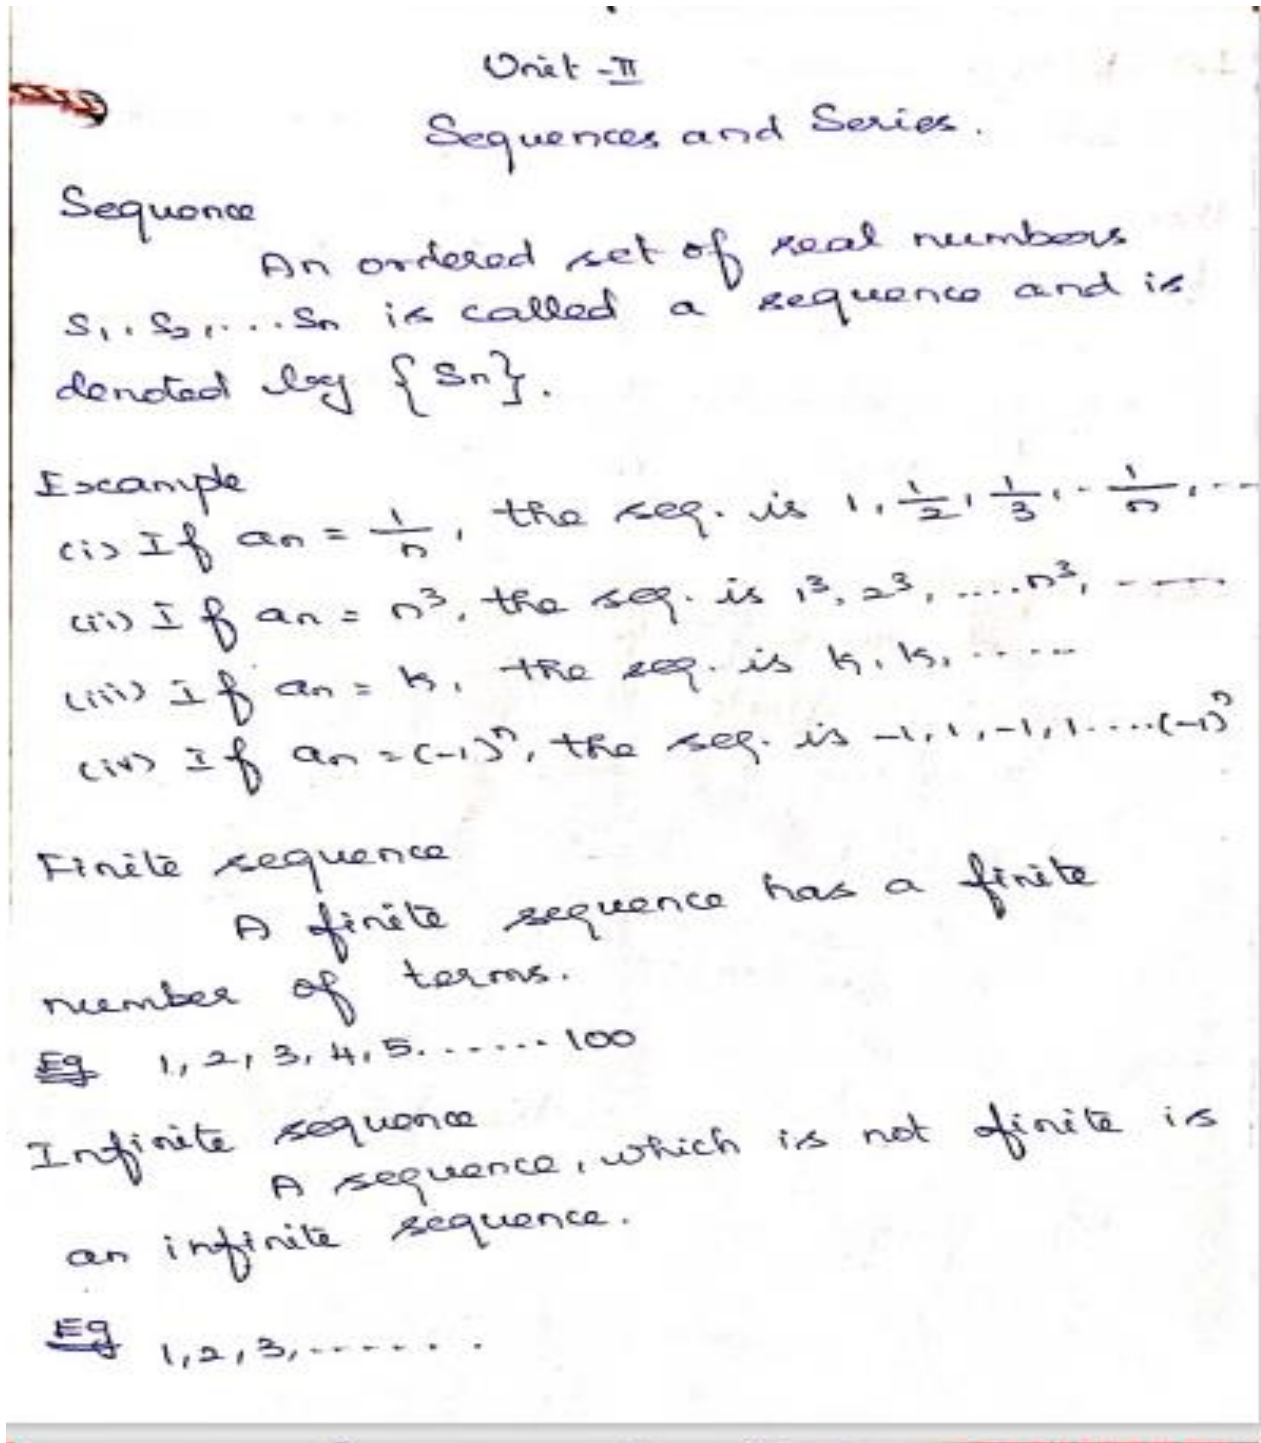 Unit - II
Sequences and Series.
Sequence
An ordered set of real numbers
S₁, S₂, ... Sn is called a sequence and is
denoted by {Sn}.
Example
(i) If an = 1/n, the seq. is 1, 1/2, 1/3, .. 1/n, ...
(ii) If an = n³, the seq. is 1³, 2³, ....n³, ......
(iii) If an = k, the seq. is k, k, ......
(iv) If an = (-1)ⁿ, the seq. is -1, 1, -1, 1.....(-1)ⁿ
Finite sequence
A finite sequence has a finite
number of terms.
Eg 1, 2, 3, 4, 5.......100
Infinite sequence
A sequence, which is not finite is
an infinite sequence.
Eg 1, 2, 3, .......